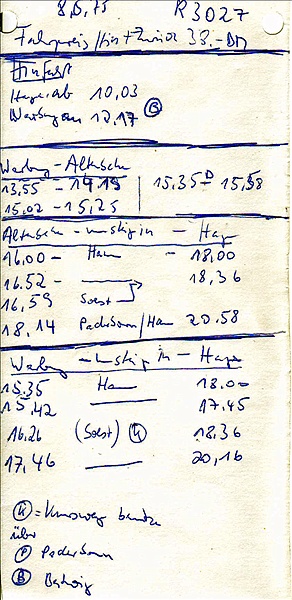 8.5.75 R3027
Fahrpreis/hin+zurück 38.-DM
Hinfahrt
Hagen ab 10,03
Warburg an 12.17 Ⓑ
Warburg - Altenbeken
13,55 - 14.19 15.35 D 15,58
15,02 - 15,25
Altenbeken - umsteigen in - Hagen
16.00 - Hamm - 18,00
16.52 - 18,36
16,59 Soest
18.14 Paderborn/Hamm 20.58
Warburg - umsteigen in - Hagen
15.35 Hamm 18.00
15,42 17,45
16.26 (Soest) Ⓚ 18.36
17,46 20,16
Ⓚ = Kurswagen
über
Ⓟ Paderborn
Ⓑ Bestwig